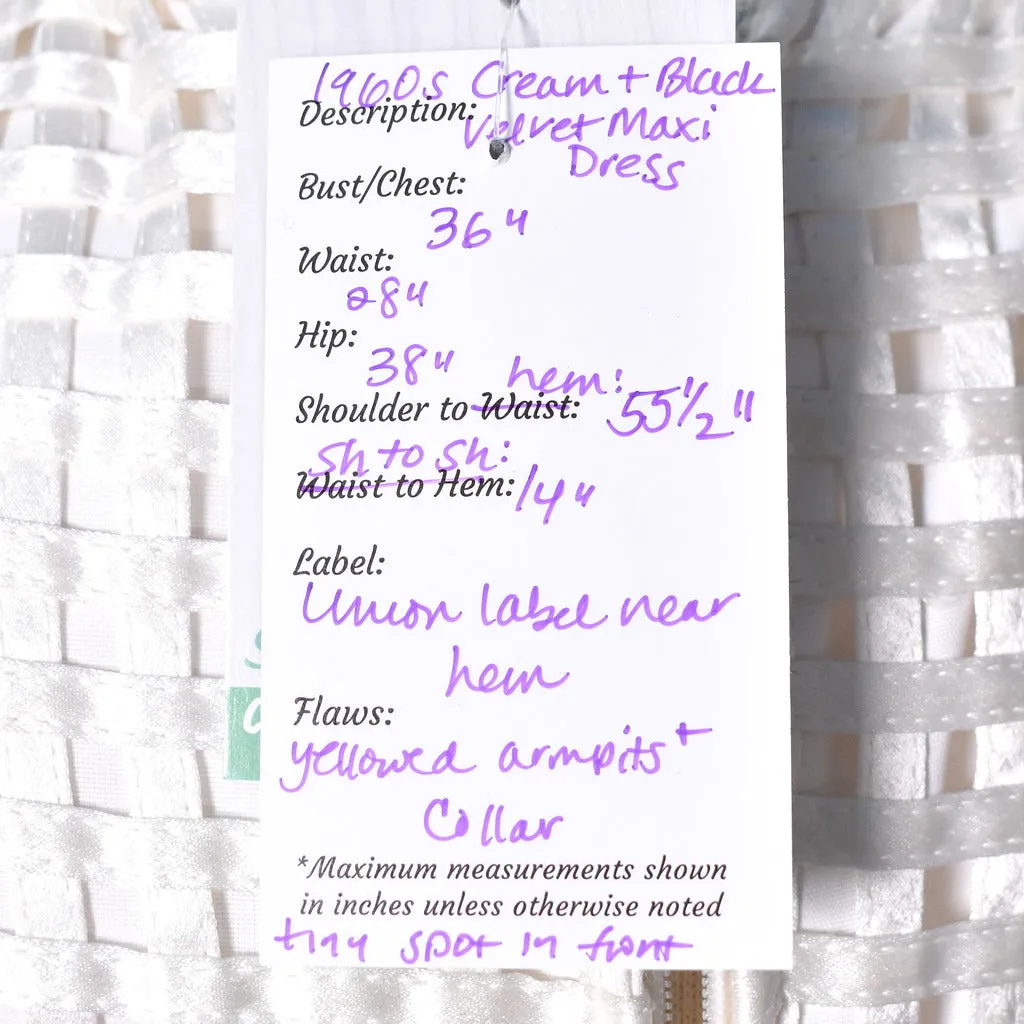 1960s Cream + Black
Description: Velvet Maxi
Dress
Bust/Chest:
36"
Waist:
28"
Hip:
38" hem:
Shoulder to Waist: 55 1/2"
sh to sh:
Waist to Hem: 14"
Label:
Union label near
hem
Flaws:
yellowed armpits +
Collar
*Maximum measurements shown
in inches unless otherwise noted
tiny spot in front